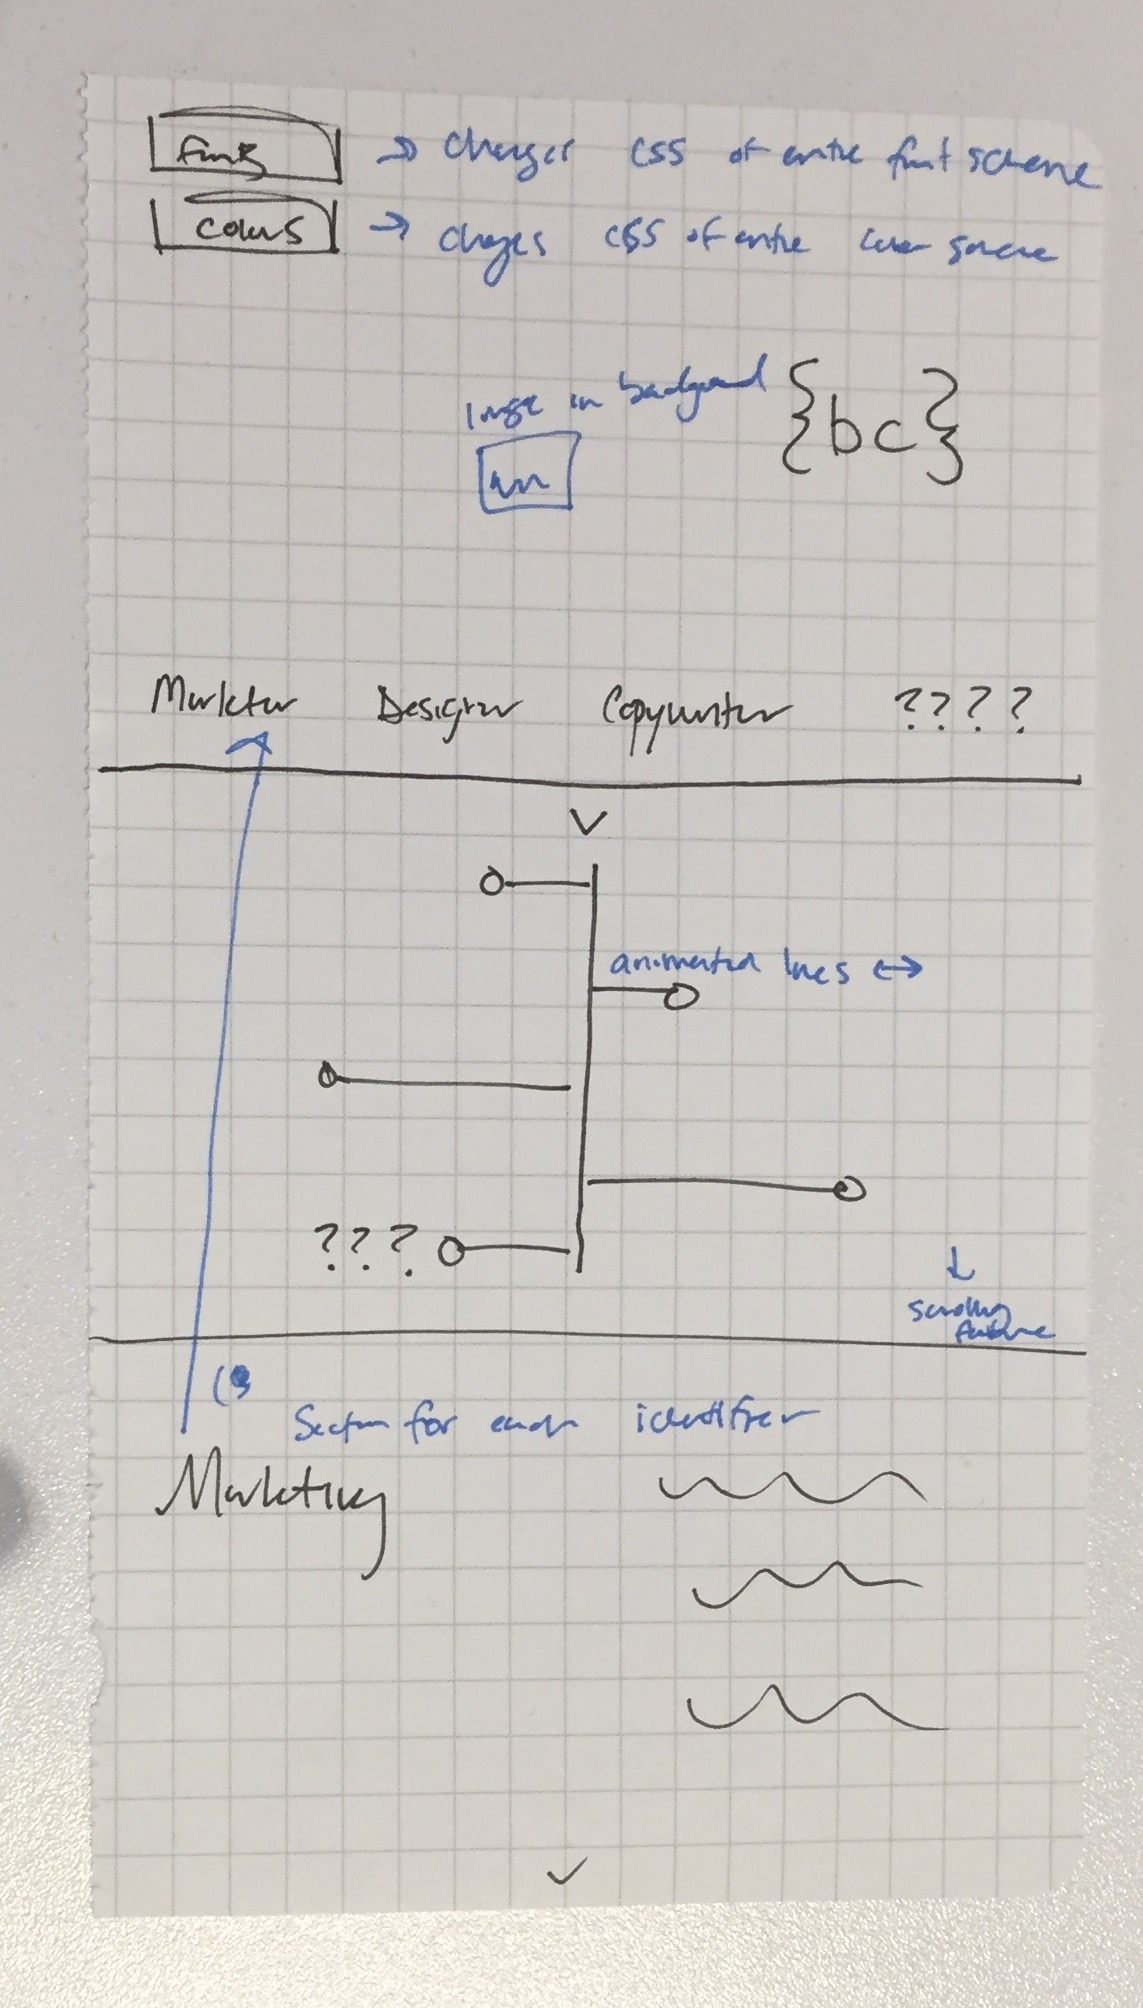 fonts → changes CSS of entire font scheme
colors → changes CSS of entire color scheme
image in background {bc}
Marketer Designer Copywriter ????
animated lines ↔
???
↓
scrolling
feature
Section for each identifier
Marketing